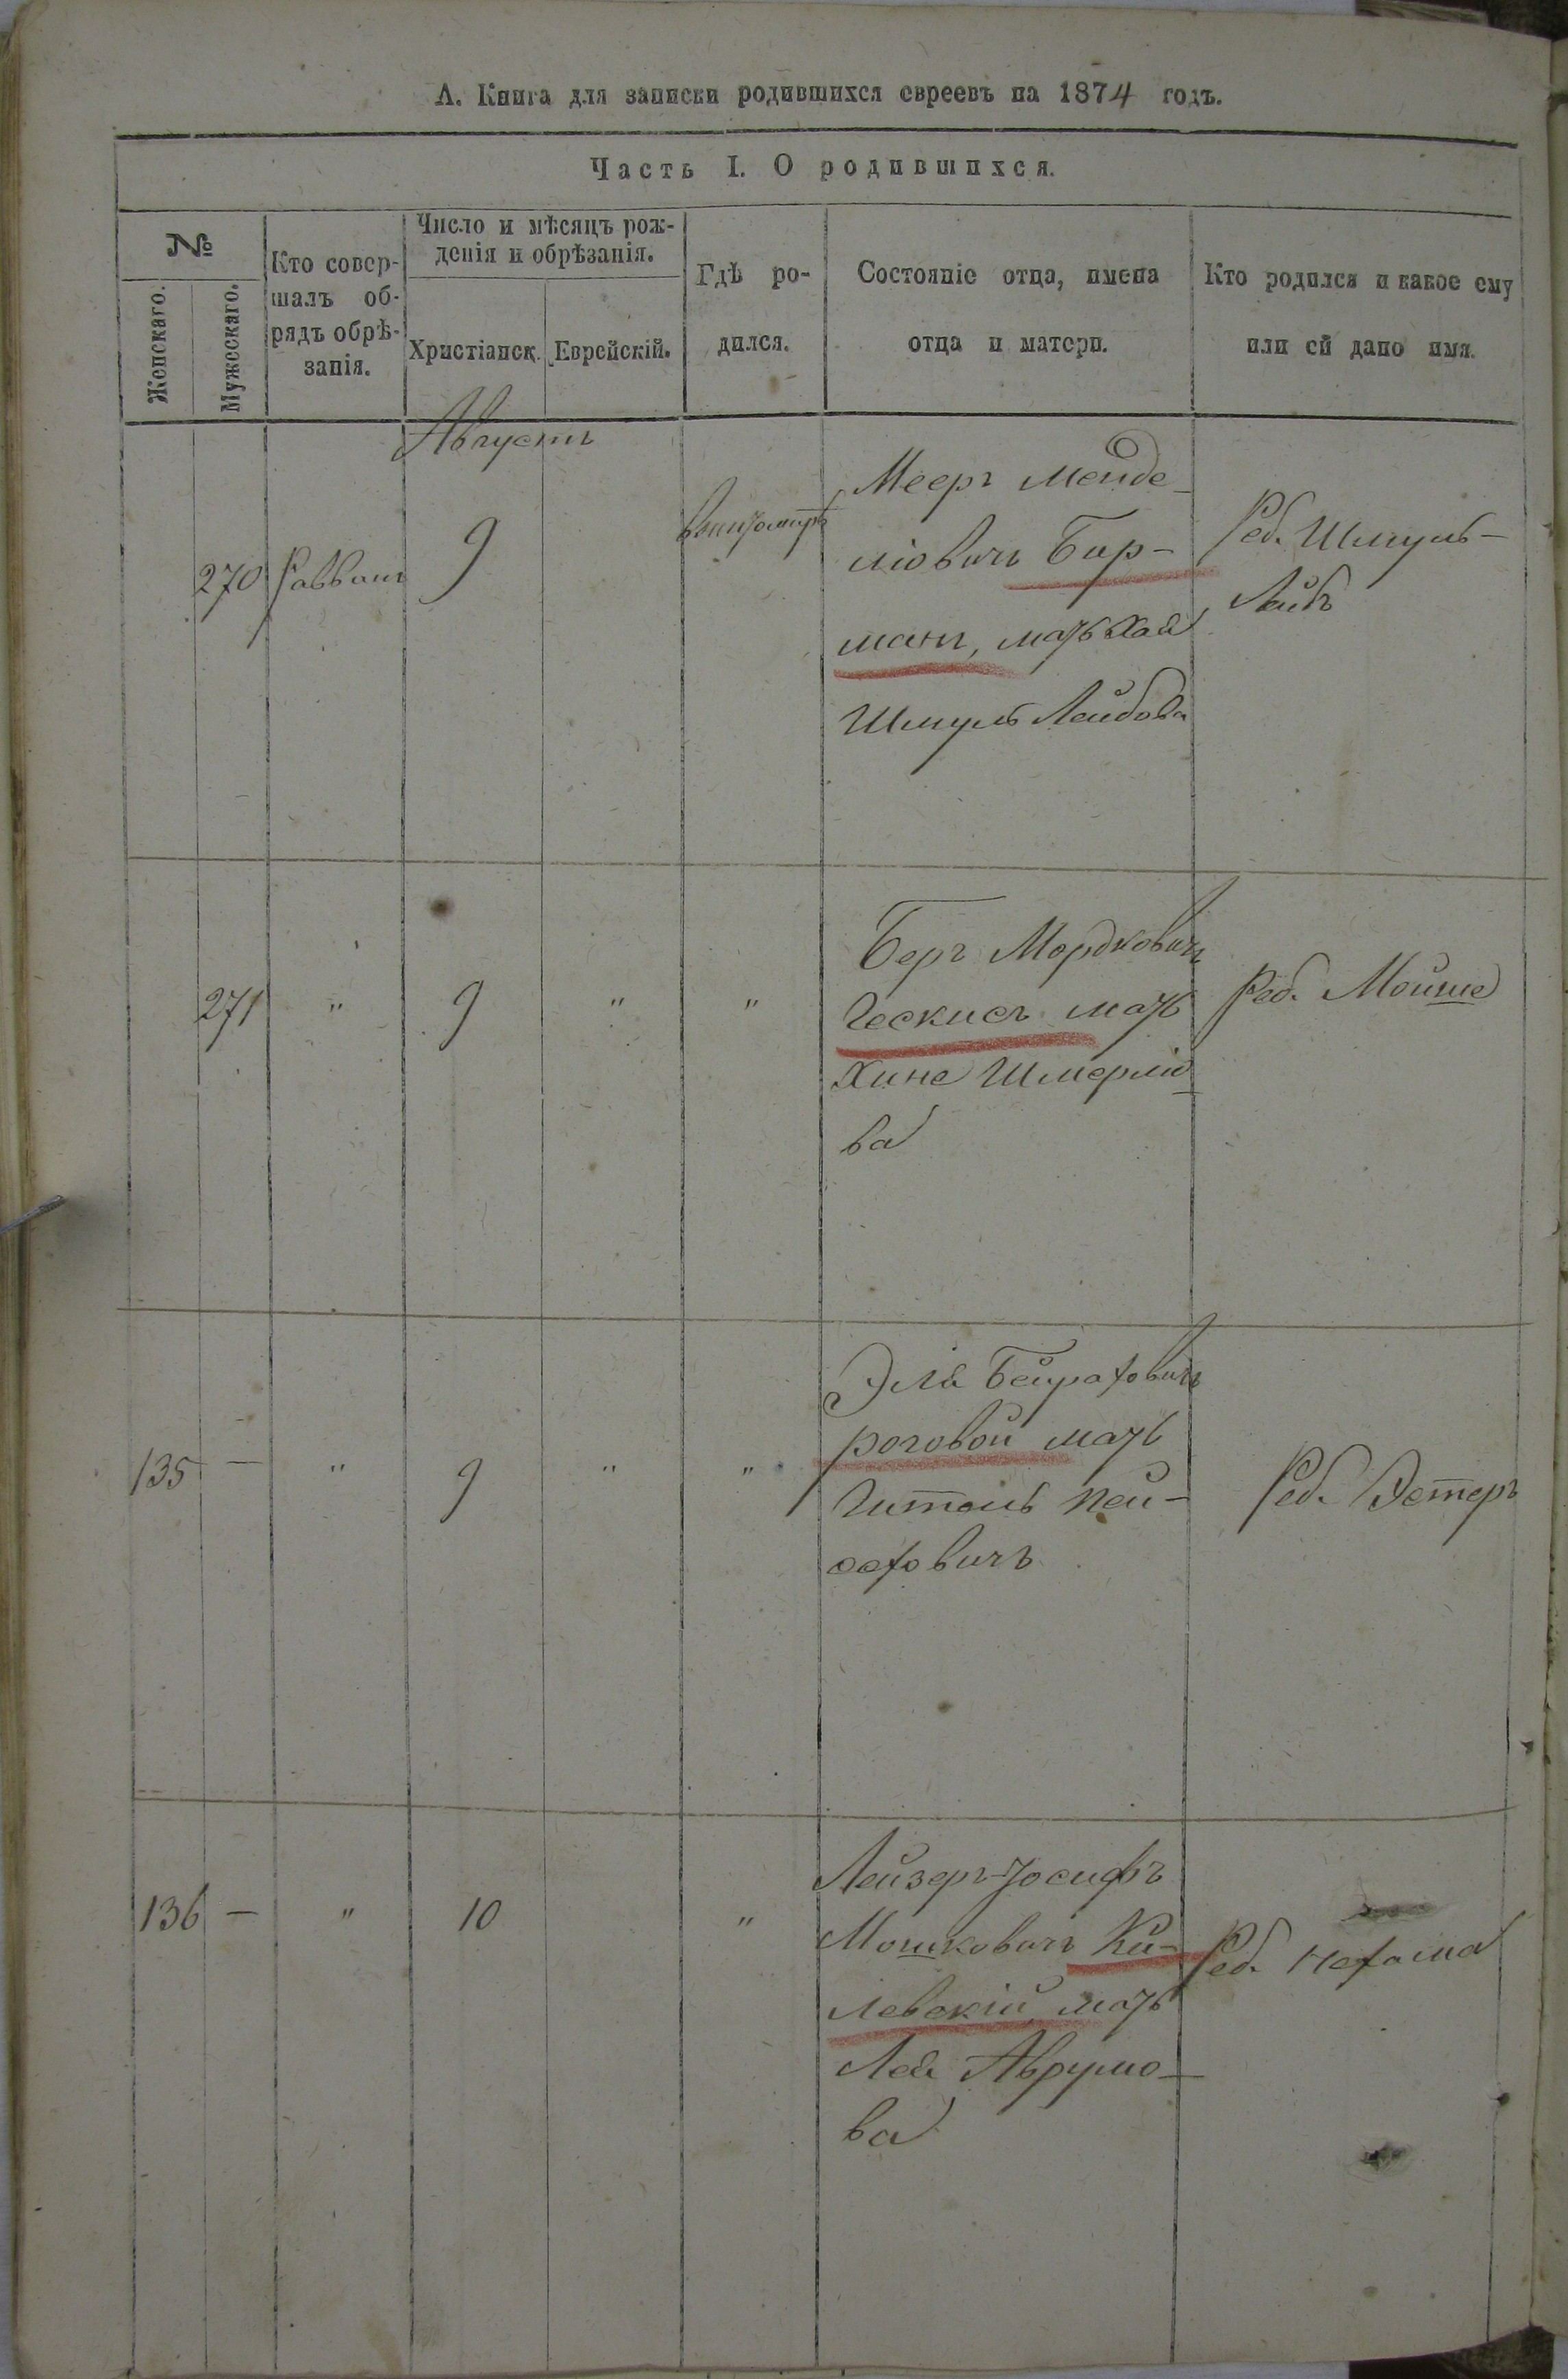 А. Книга для записки родившихся евреевъ на 1874 годъ.
Часть I. О родившихся.
№
Женскаго.
Мужескаго.
Кто совер-
шалъ об-
рядъ обрѣ-
занія.
Число и мѣсяцъ рож-
денія и обрѣзанія.
Христіанск.
Еврейскій.
Гдѣ ро-
дился.
Состояніе отца, имена
отца и матери.
Кто родился и какое ему
или ей дано имя.
Августъ
270
Раввинъ
9
Мееръ Менде-
ліовичъ Бир-
манъ, мать Хая
Шмуль Лейбова
Реб. Шмуль-
Лейбъ
271
"
9
"
"
Беръ Мордковичъ
Ческисъ мать
Хине Шмерліо-
ва
Реб. Мойше
135
—
"
9
"
"
Эля
роговой мать
Гитель
Реб. Эстеръ
136
—
"
10
"
Лейзеръ-Іосифъ
Мошковичъ Ки-
левскій, мать
Лея Аврумо-
ва
Реб. Нехама